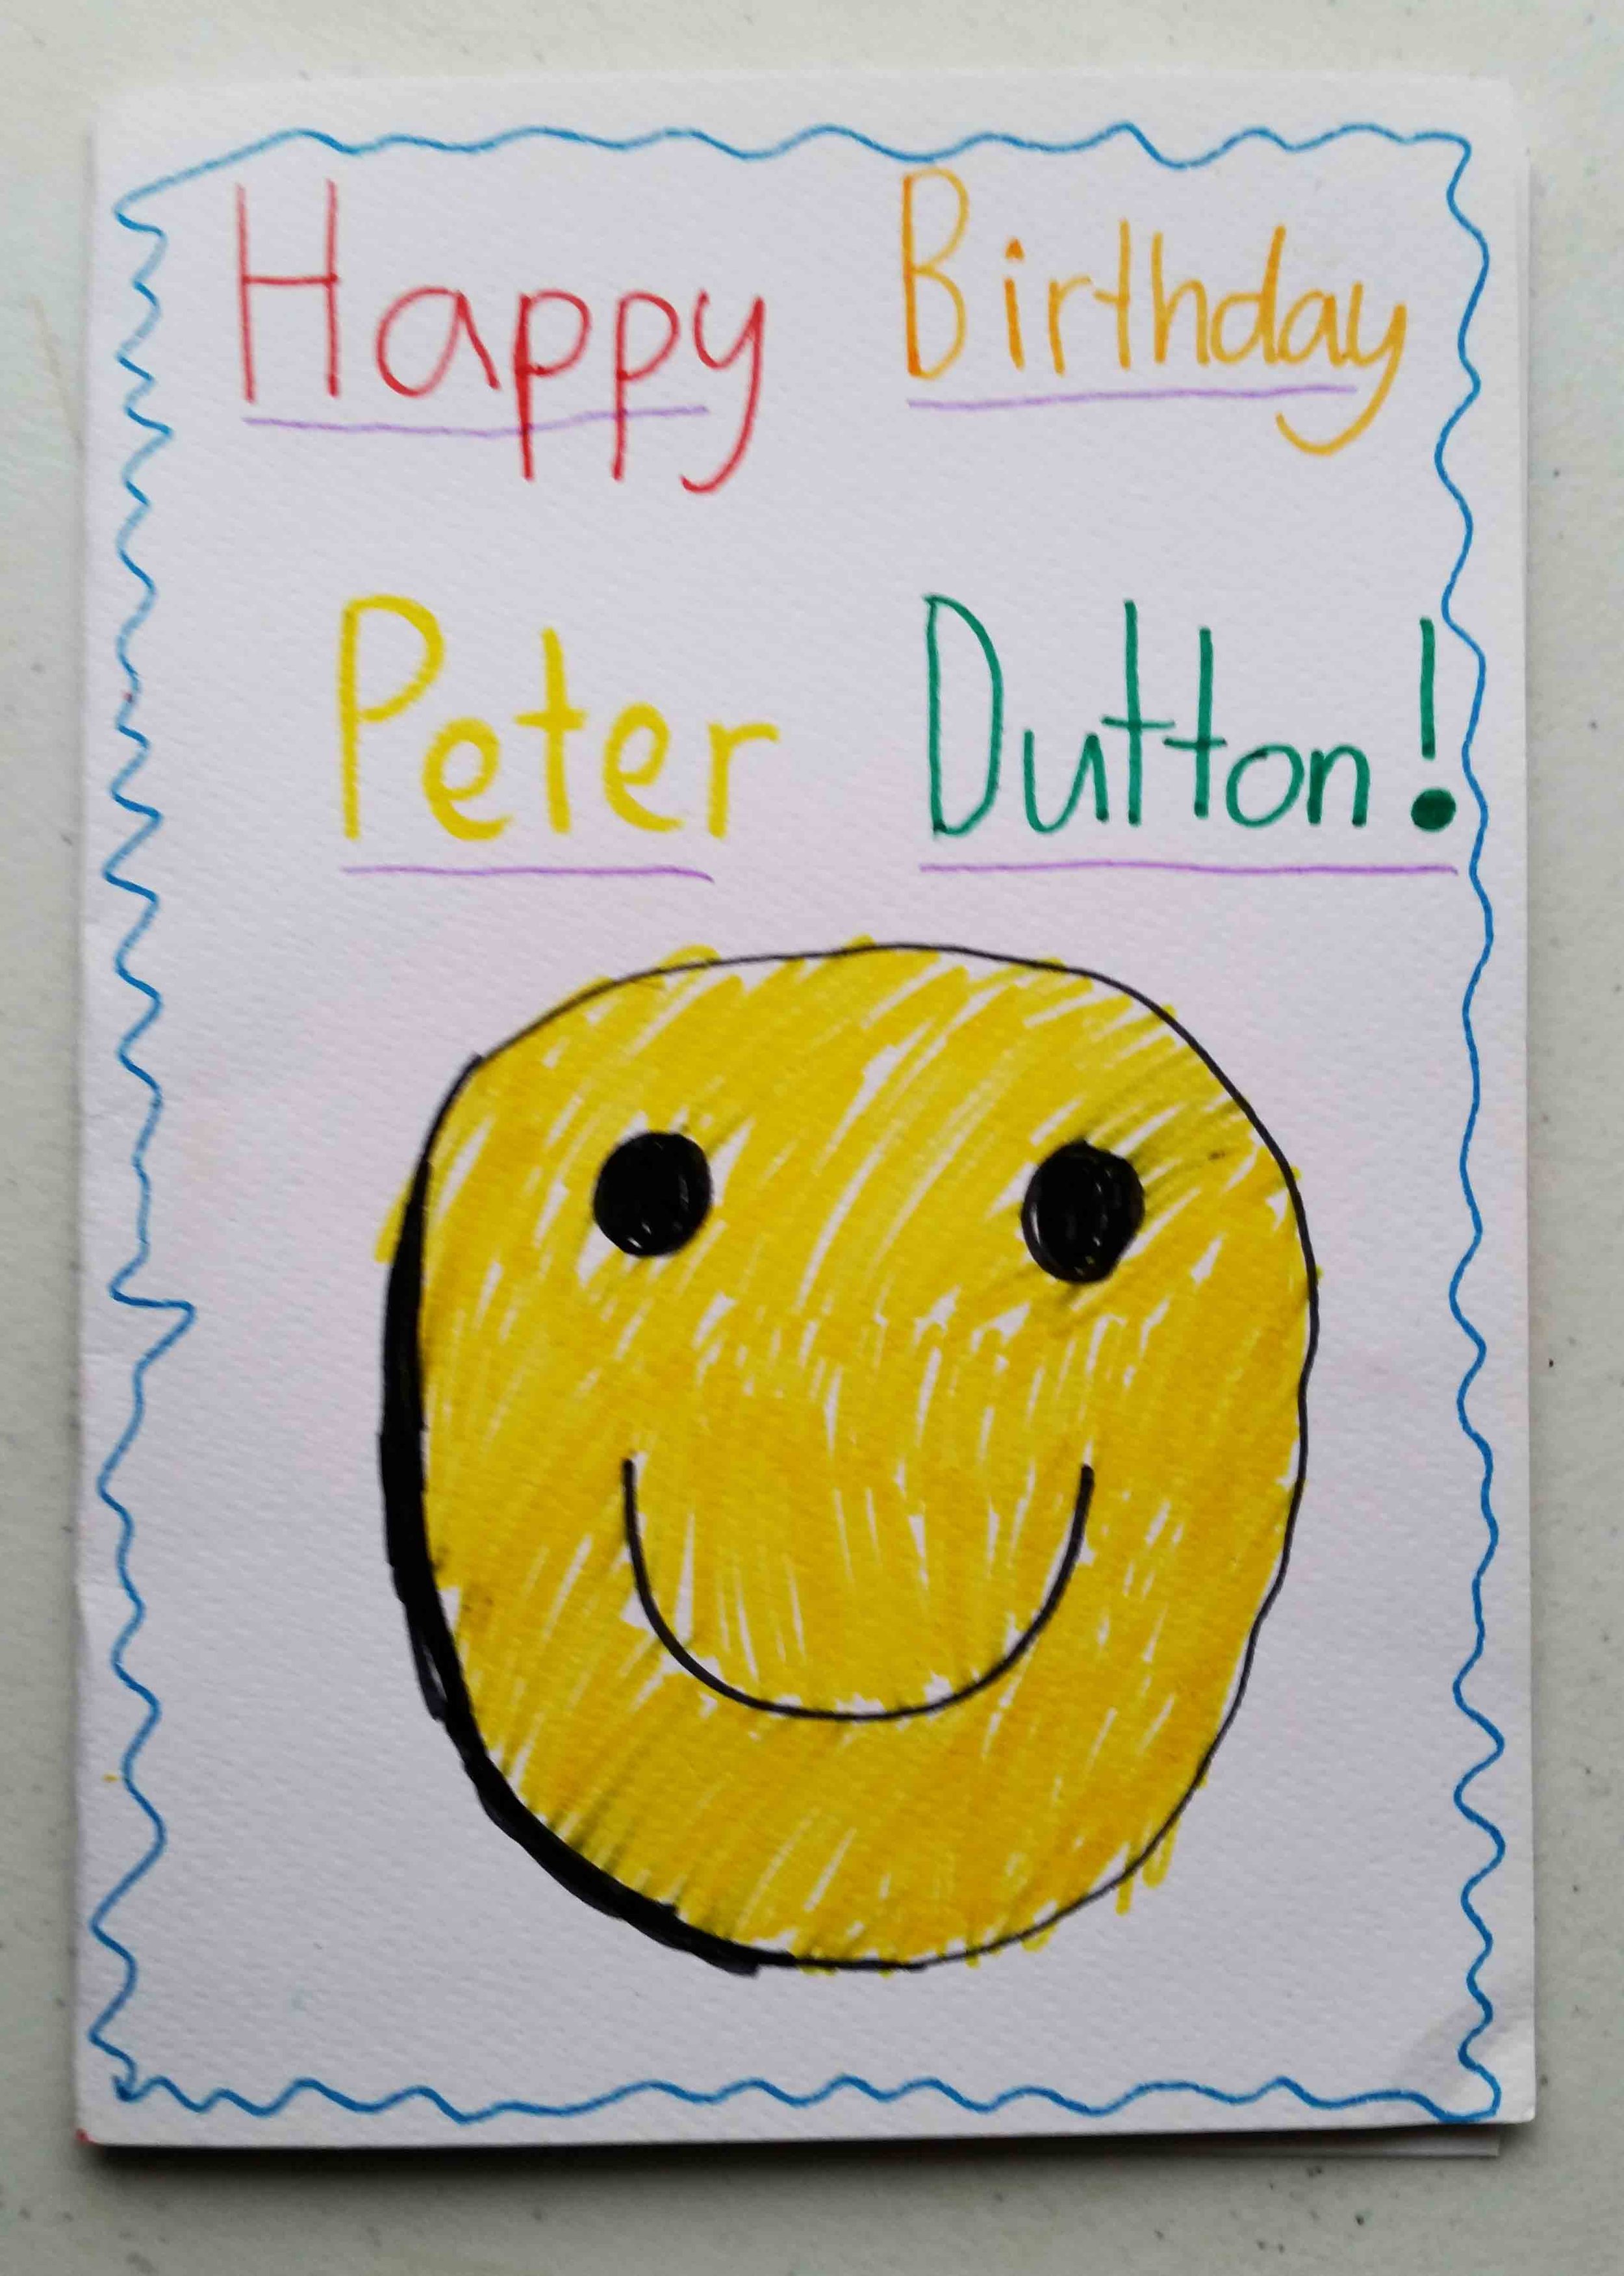 Happy Birthday
Peter Dutton!